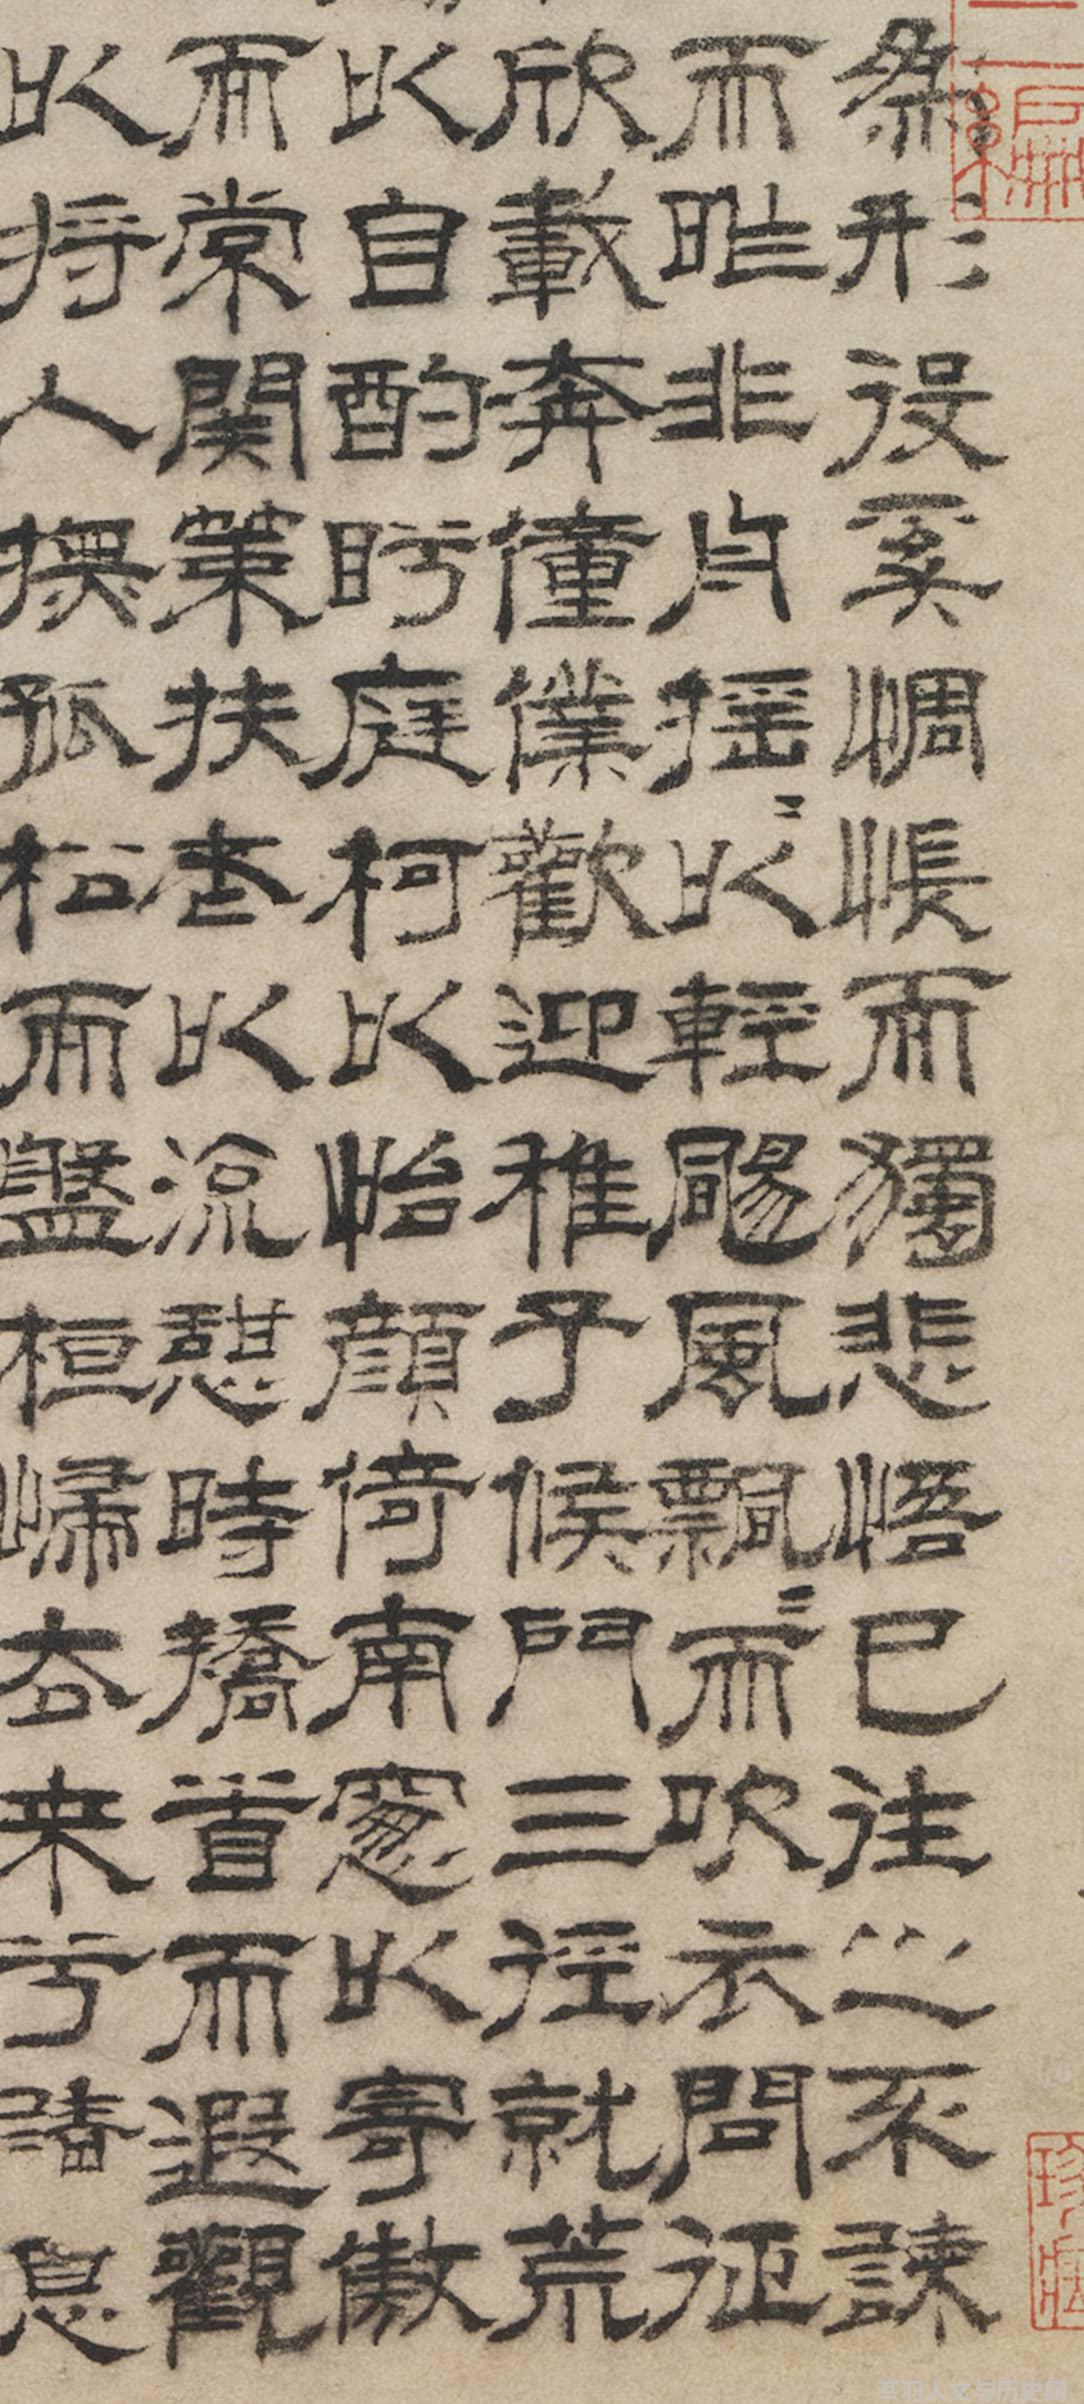 爲形役奚惆悵而獨悲悟已往之不諫
而昨非舟搖〻以輕颺風飄〻而吹衣問征
欣載奔僮僕歡迎稚子候門三徑就荒
以自酌眄庭柯以怡顏倚南窻以寄傲
而常關策扶老以流憩時矯首而遐觀
以将入撫孤松而盤桓歸去来兮請息
編
珍藏
人文与历史